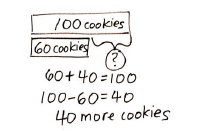 100 cookies
60 cookies
?
60+40=100
100-60=40
40 more cookies